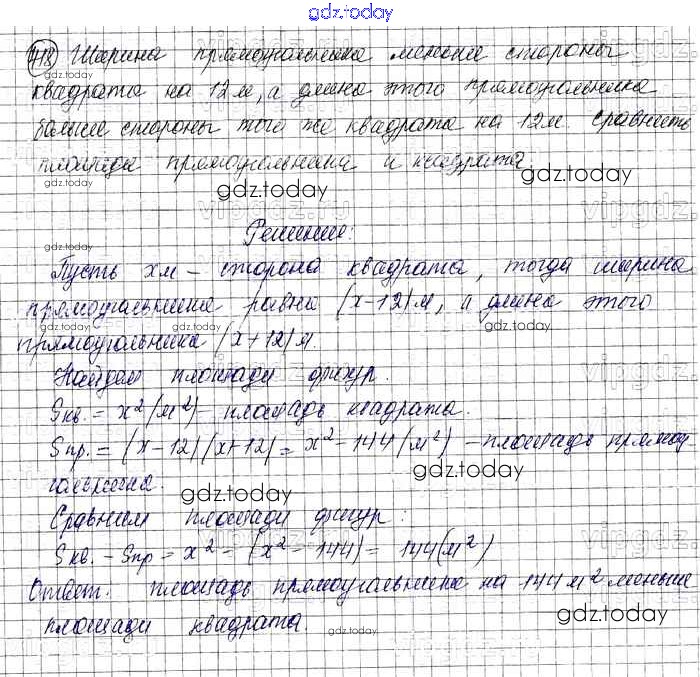 gdz.today
418) Ширина прямоугольника меньше стороны
квадрата на 12 м, а длина этого прямоугольника
больше стороны того же квадрата на 12 м. Сравнить
площади прямоугольника и квадрата.
gdz.today gdz.today
Решение:
Пусть x м – сторона квадрата, тогда ширина
прямоугольника равна (x-12) м, а длина этого
прямоугольника (x+12) м.
Найдем площади фигур.
Sкв. = x² (м²) – площадь квадрата.
Sпр. = (x-12)(x+12) = x² - 144 (м²) – площадь прямоу-
гольника.
gdz.today gdz.today
Сравним площади фигур:
Sкв. - Sпр = x² - (x² - 144) = 144 (м²)
Ответ. площадь прямоугольника на 144 м² меньше
площади квадрата.
gdz.today gdz.today